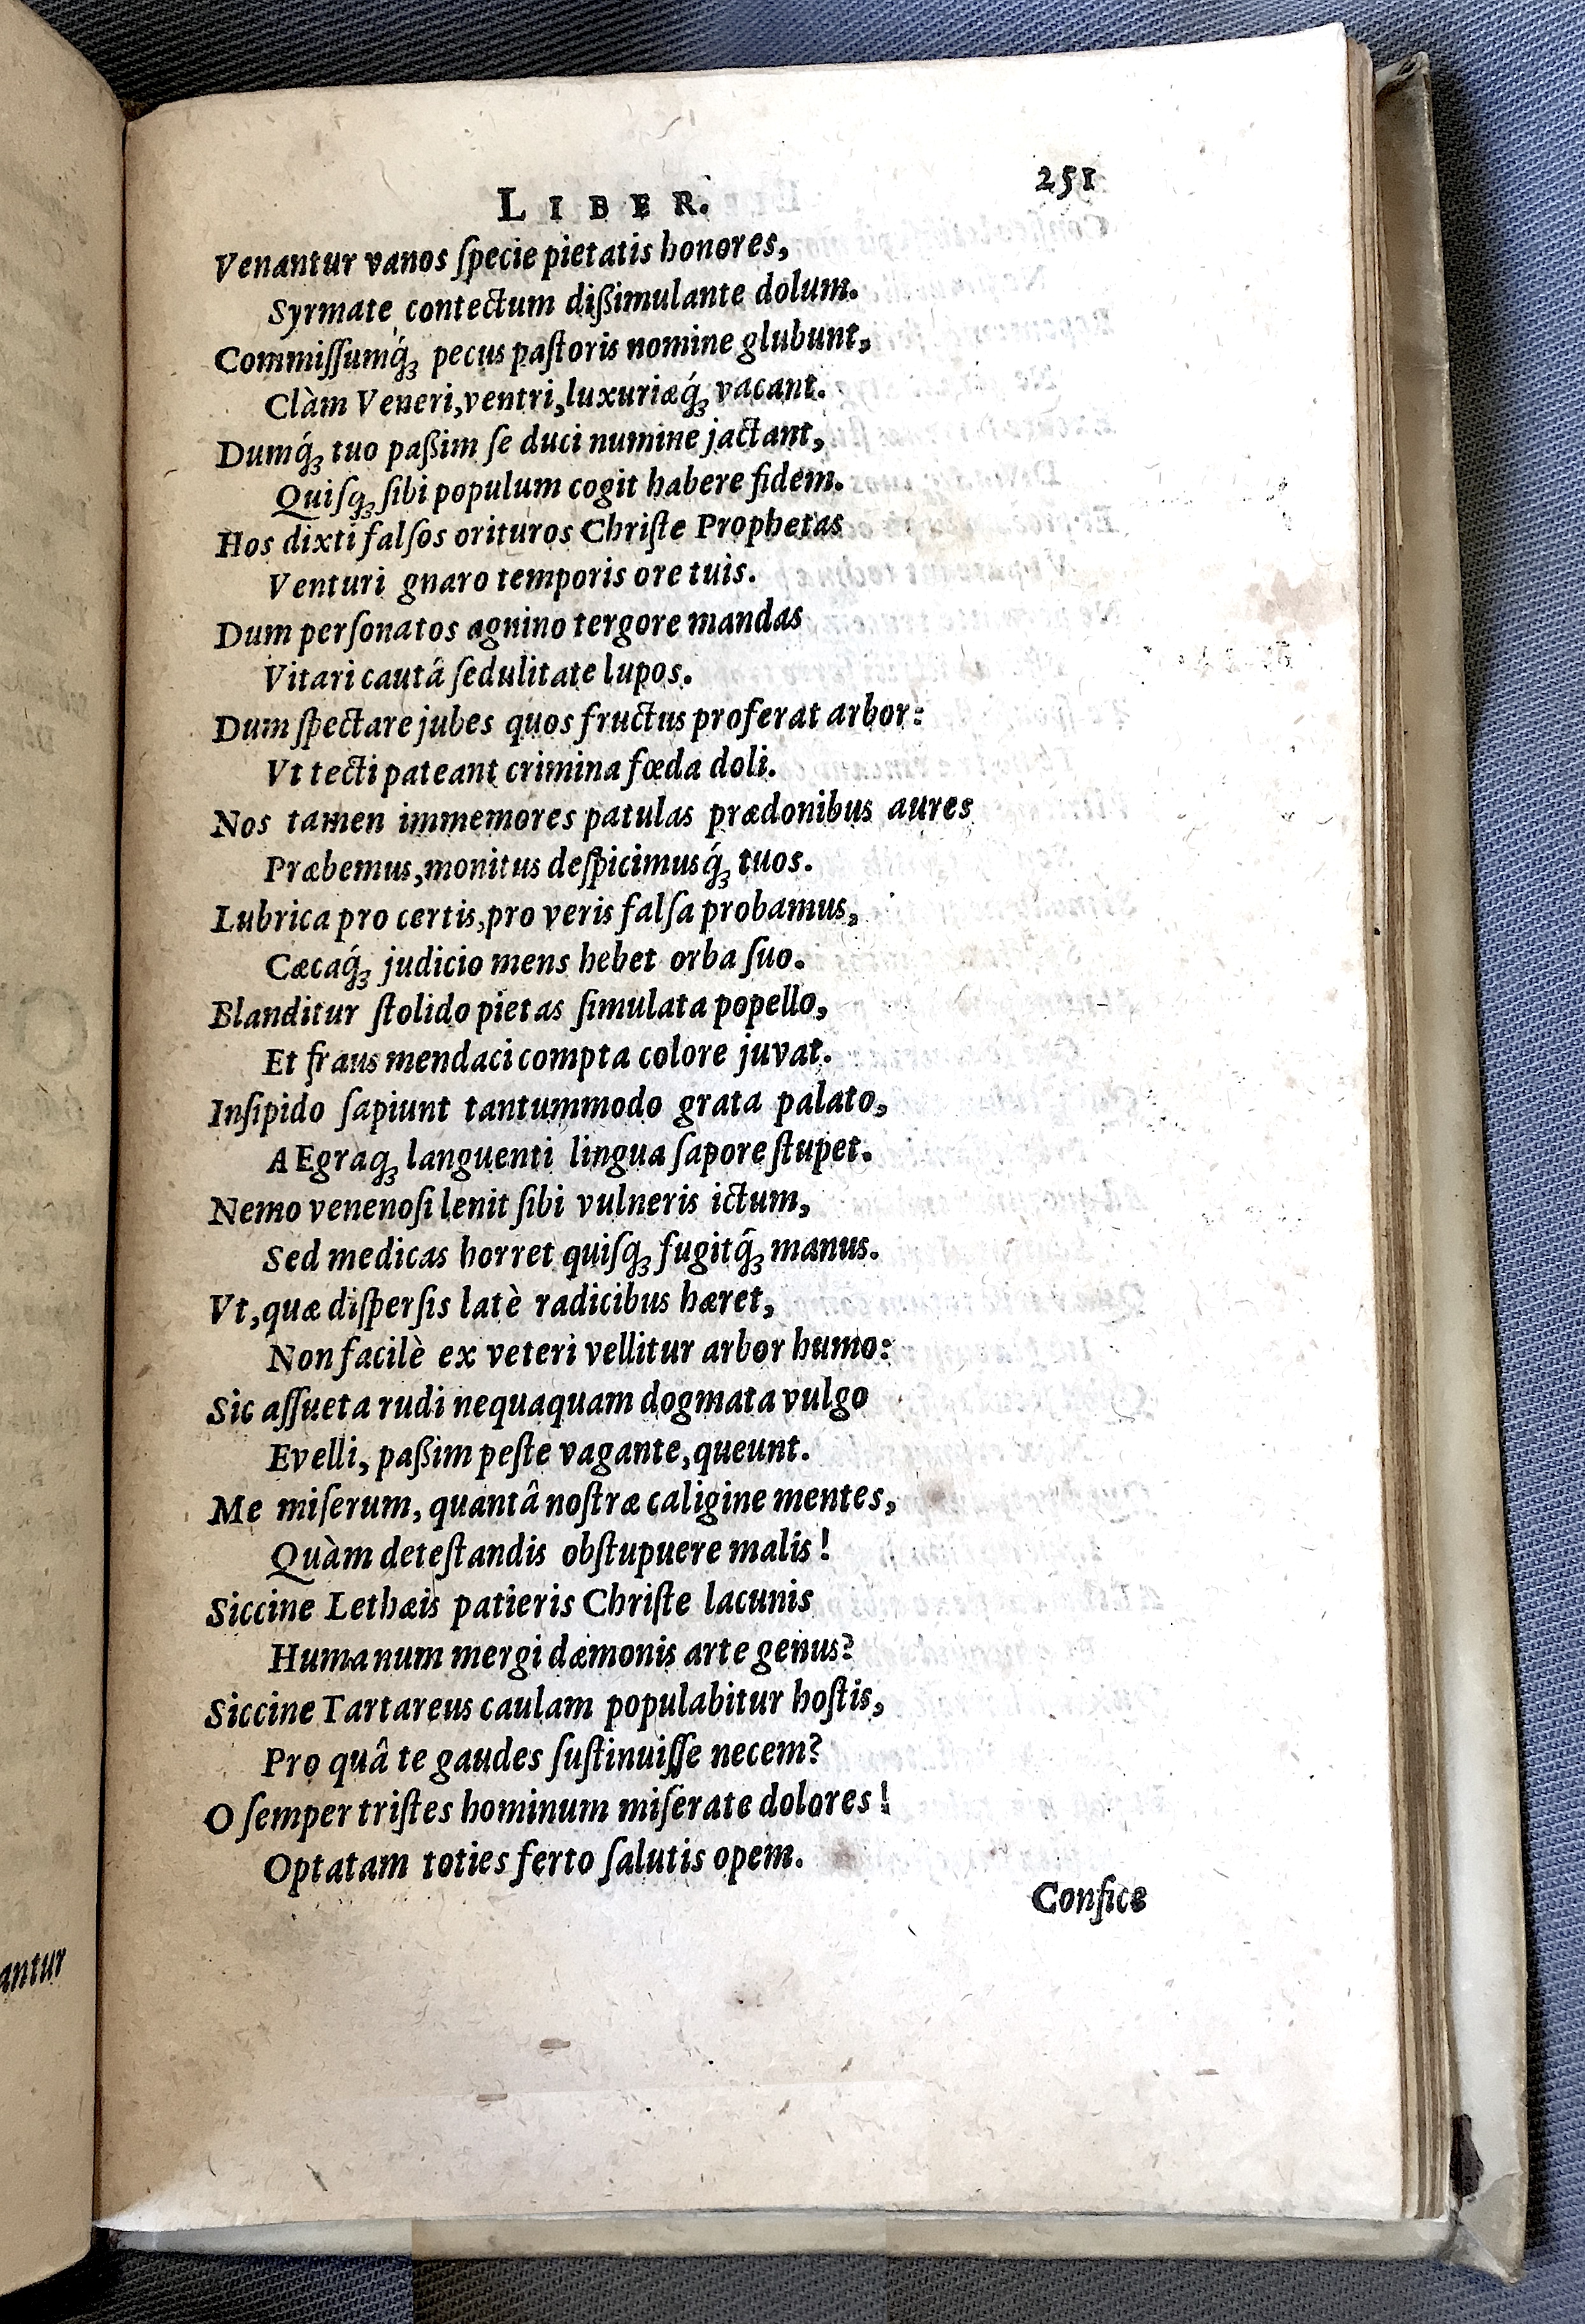 LIBER. 251
Venantur vanos ſpecie pietatis honores,
Syrmate contectum dißimulante dolum.
Commiſſumq́ꝫ pecus paſtoris nomine glubunt,
Clàm Veneri, ventri, luxuriæq́ꝫ vacant.
Dumq́ꝫ tuo paßim ſe duci numine jactant,
Quiſqꝫ ſibi populum cogit habere fidem.
Hos dixti falſos orituros Chriſte Prophetas
Venturi gnaro temporis ore tuis.
Dum perſonatos agnino tergore mandas
Vitari cautâ ſedulitate lupos.
Dum ſpectare jubes quos fructus proferat arbor:
Vt tecti pateant crimina fœda doli.
Nos tamen immemores patulas prædonibus aures
Præbemus, monitus deſpicimusq́ꝫ tuos.
Lubrica pro certis, pro veris falſa probamus,
Cæcaq́ꝫ judicio mens hebet orba ſuo.
Blanditur ſtolido pietas ſimulata popello,
Et fraus mendaci compta colore juvat.
Inſipido ſapiunt tantummodo grata palato,
AEgraqꝫ languenti lingua ſapore ſtupet.
Nemo venenoſi lenit ſibi vulneris ictum,
Sed medicas horret quiſqꝫ fugitq́ꝫ manus.
Vt, quæ diſperſis latè radicibus hæret,
Non facilè ex veteri vellitur arbor humo:
Sic aſſueta rudi nequaquam dogmata vulgo
Evelli, paßim peſte vagante, queunt.
Me miſerum, quantâ noſtræ caligine mentes,
Quàm deteſtandis obſtupuere malis!
Siccine Lethæis patieris Chriſte lacunis
Humanum mergi dæmonis arte genus?
Siccine Tartareus caulam populabitur hoſtis,
Pro quâ te gaudes ſuſtinuiſſe necem?
O ſemper triſtes hominum miſerate dolores!
Optatam toties ferto ſalutis opem.
Confice
antur